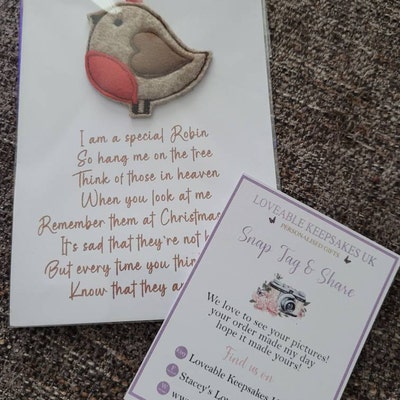 I am a special Robin
So hang me on the tree
Think of those in heaven
When you look at me
Remember them at Christmas
It's sad that they're not
But every time you
Know that they
LOVEABLE KEEPSAKES UK
PERSONALISED GIFTS
Snap Tag & Share
We love to see your pictures!
your order made my day
hope it made yours!
Find us on
Loveable Keepsakes
Stacey's Lov
www